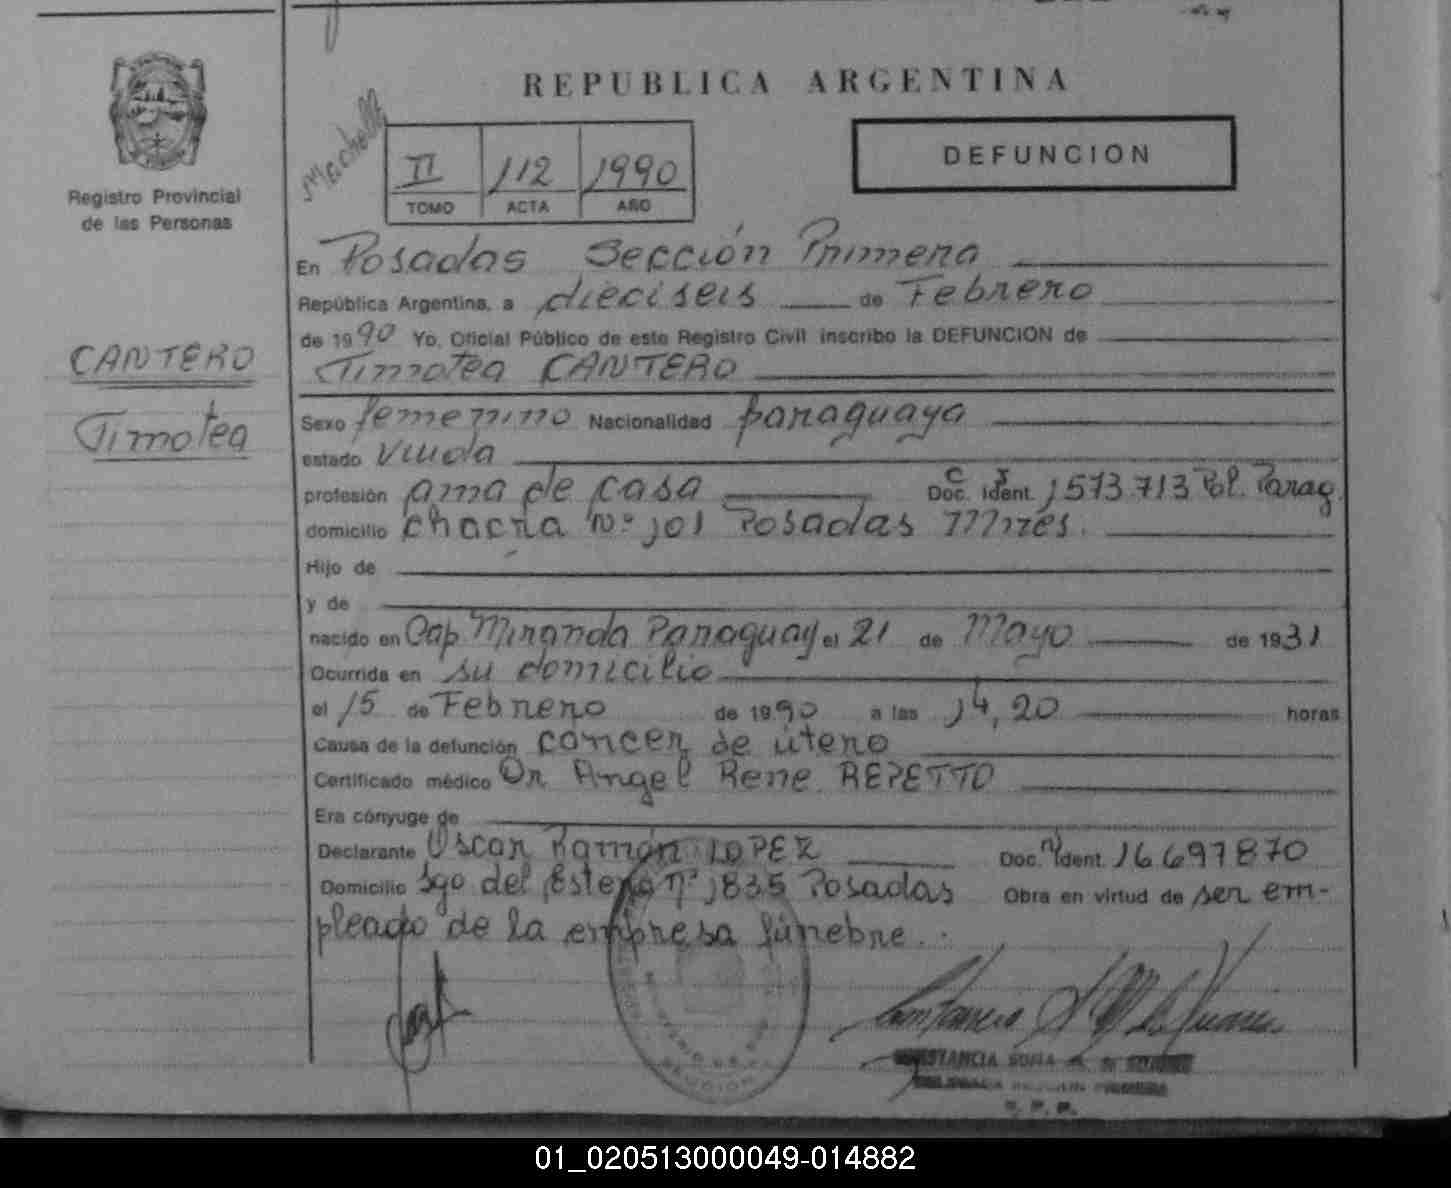 REPUBLICA ARGENTINA
Registro Provincial
de las Personas
II 112 1990
TOMO ACTA AÑO
DEFUNCION
CANTERO
Timotea
En Posadas Sección Primera
República Argentina, a dieciseis de Febrero
de 1990 Yo, Oficial Público de este Registro Civil inscribo la DEFUNCION de
Timotea CANTERO
Sexo femenino Nacionalidad paraguaya
estado viuda
profesión ama de casa Doc. Ident. 1573.713 Pol. Parag.
domicilio chacra Nº 101 Posadas Mnes.
Hijo de
y de
nacido en Cap. Miranda Paraguay el 21 de Mayo de 1931
Ocurrida en su domicilio
el 15 de Febrero de 1990 a las 14,20 horas
Causa de la defunción cancer de útero
Certificado médico Dr Angel Rene REPETTO
Era cónyuge de
Declarante Oscar Ramón LOPEZ Doc. Ident. 16697870
Domicilio Sgo del Estero nº 1835 Posadas Obra en virtud de ser em-
pleado de la empresa fúnebre.
01_020513000049-014882